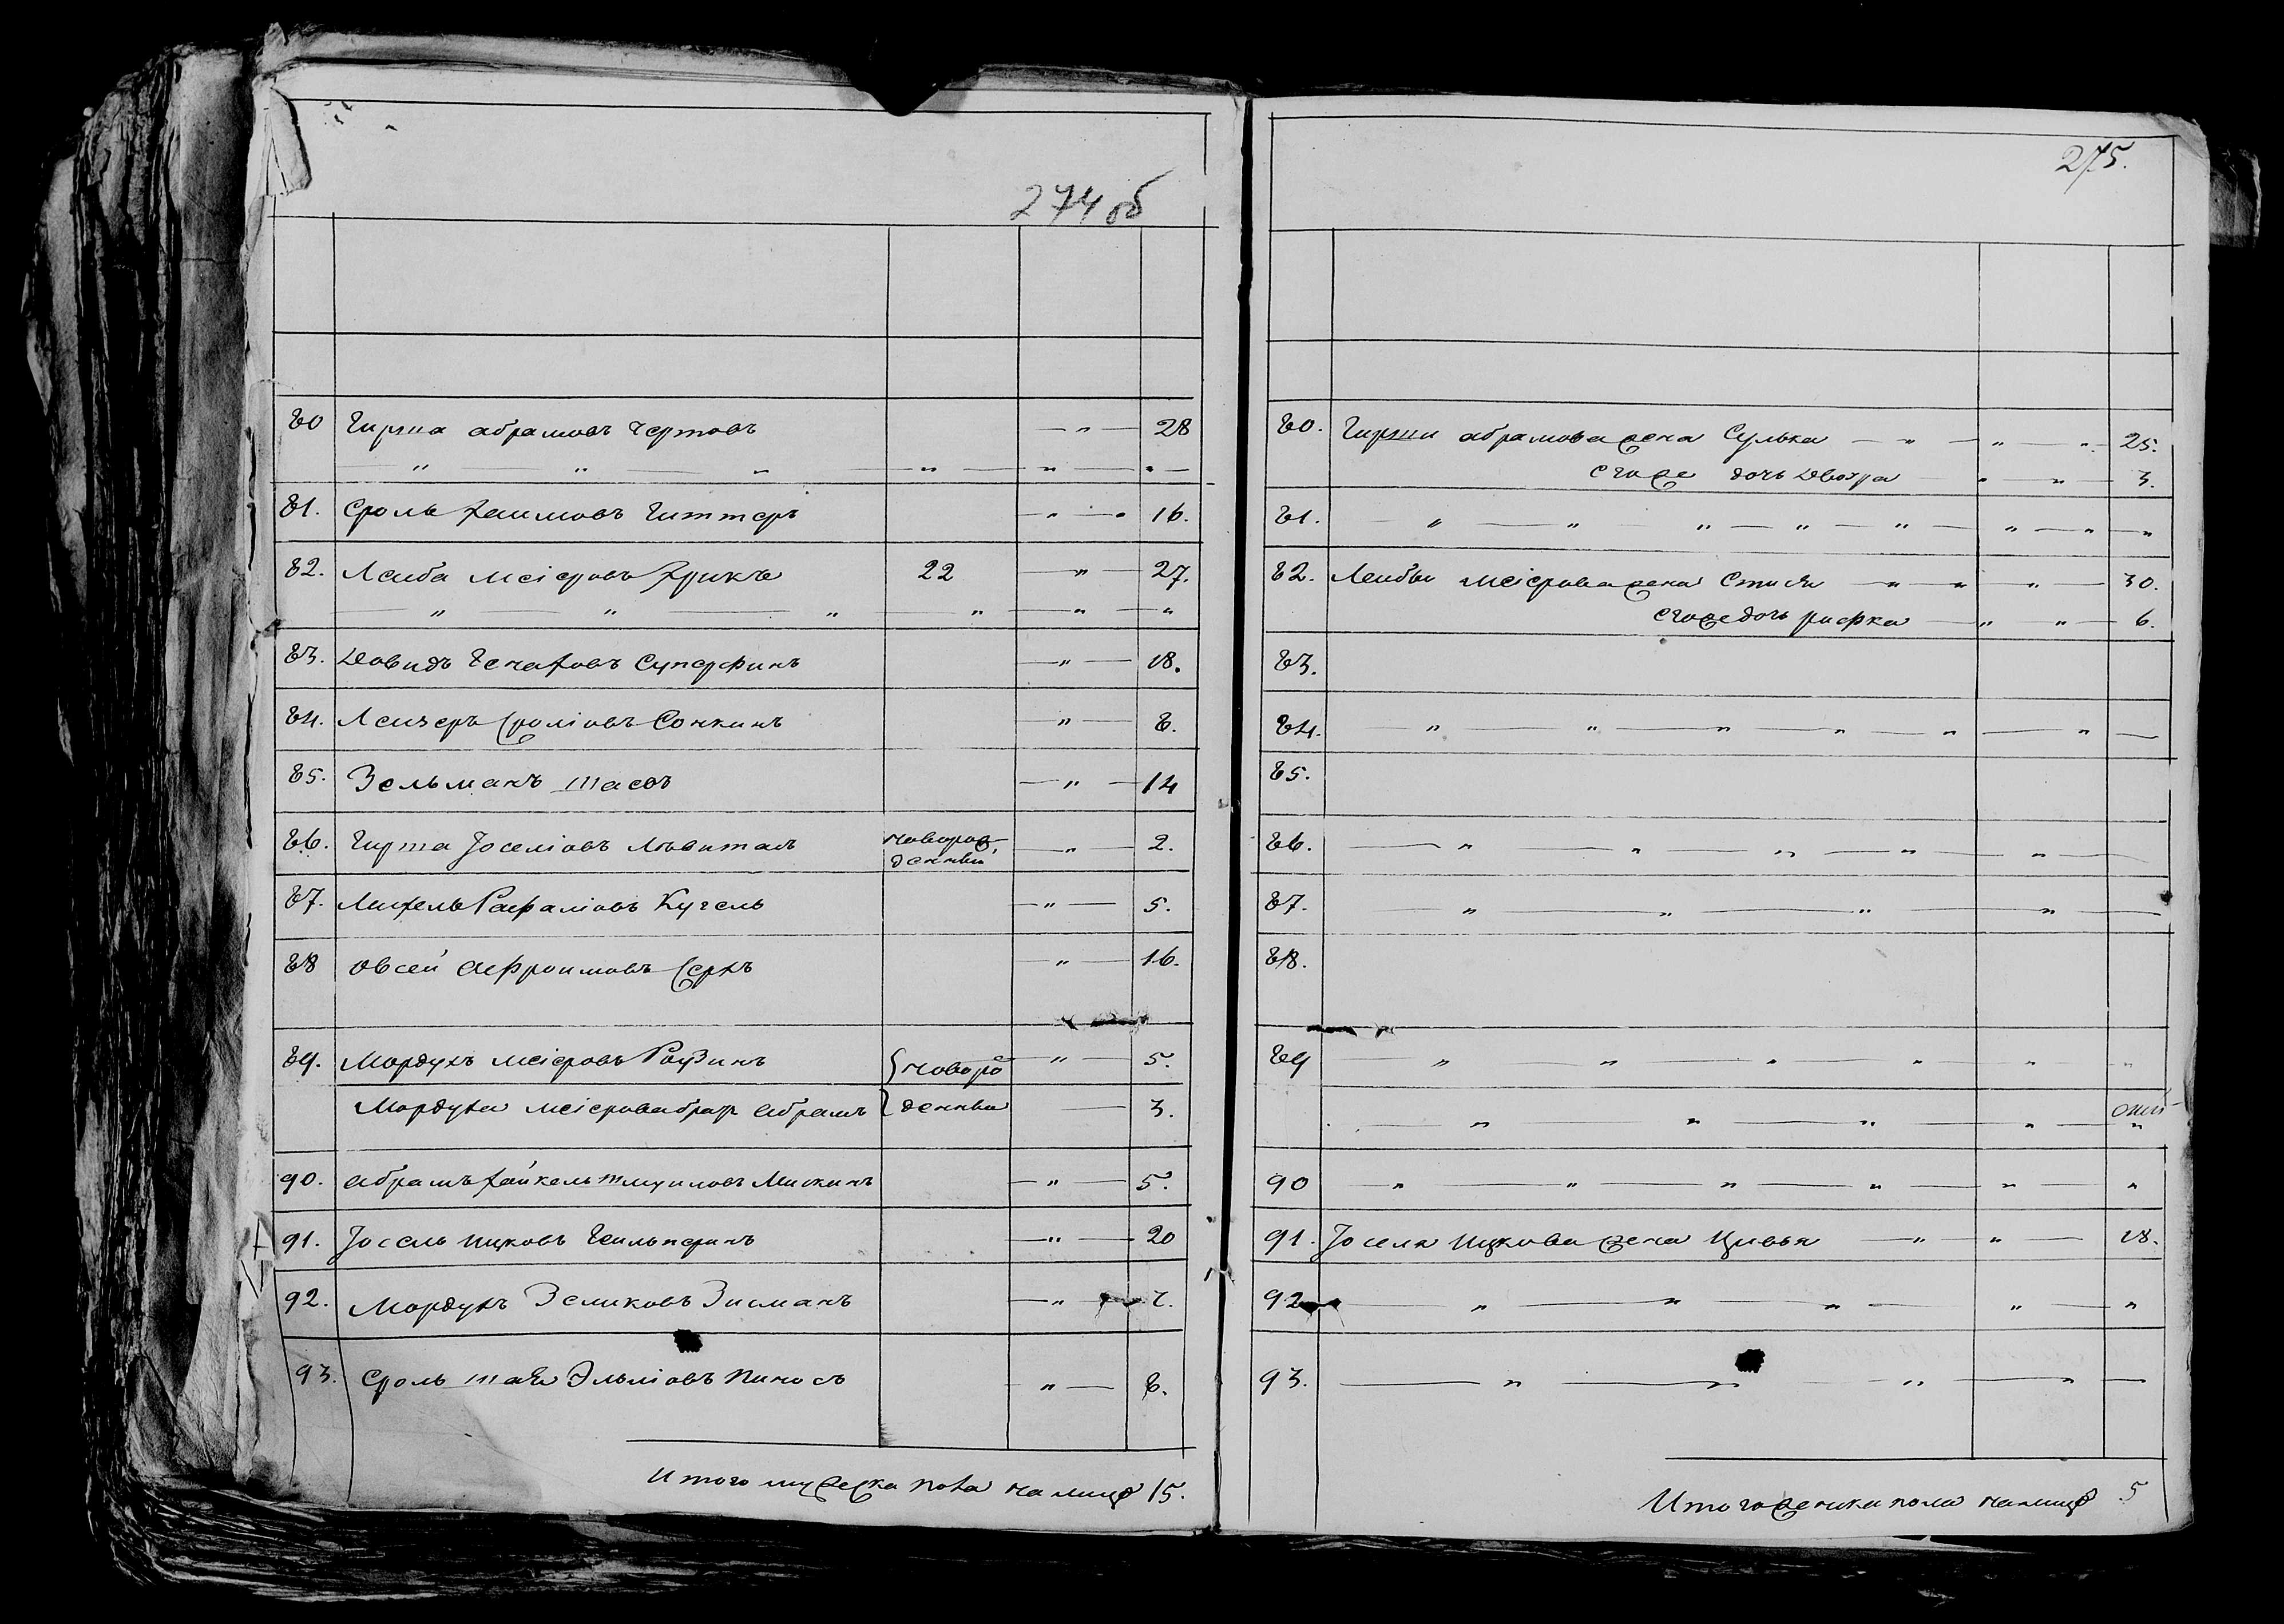 274 об
80 Гирша Абрамовъ Чертовъ — " — 28
" — " — " — " — " — " —
81. Сроль Хаимовъ Гиттеръ — " — 16.
82. Леиба Меіеровъ Крикъ 22 " — 27.
— " — " — " — " — " — "
83. Довидъ Генаховъ Суперфинъ — " — 18.
84. Леизеръ Сроліовъ Сонкинъ " — 8.
85. Зельманъ — " — 14
86. Гирша Іоселіовъ Левитанъ новорож- — " — 2.
денныи
87. Рафаліовъ Кугель — " — 5.
88 Овсей Афроимовъ — " — 16.
89. Мордухъ Меіеровъ новоро — " — 5.
Мордуха Меіерова братъ Абрамъ денныи — 3.
90. Абрамъ Хайкель Шмуиловъ — " — 5.
91. Іосель Ицковъ Геильперинъ — " — 20
92. Мордухъ Зеликовъ Зисманъ — "
93. Сроль Эльліовъ Пиносъ " — 8.
Итого мужеска пола налицо 15.
275.
80. Гирши Абрамова жена Сулька — " — " — " 25.
его же дочь Двоира " — " — 3.
81. — " — " — " — " — " — " — " — "
82. Леибы Меіерова жена Стися — " — " — " — 30.
его же дочь Рифка — " — " — 6.
83.
84. — " — " — " — " — " — " —
85.
86. — " — " — " — " — " —
87. — " — " — " — " —
88.
89 " — " — " — " — " — "
— " — " — " — " — "
90 — " — " — " — " — " — "
91. Іоселя Ицкова жена Цивья — " — " — 18.
92 — " — " — " — " — "
93. — " — " — " — " —
Итого женска пола налицо 5